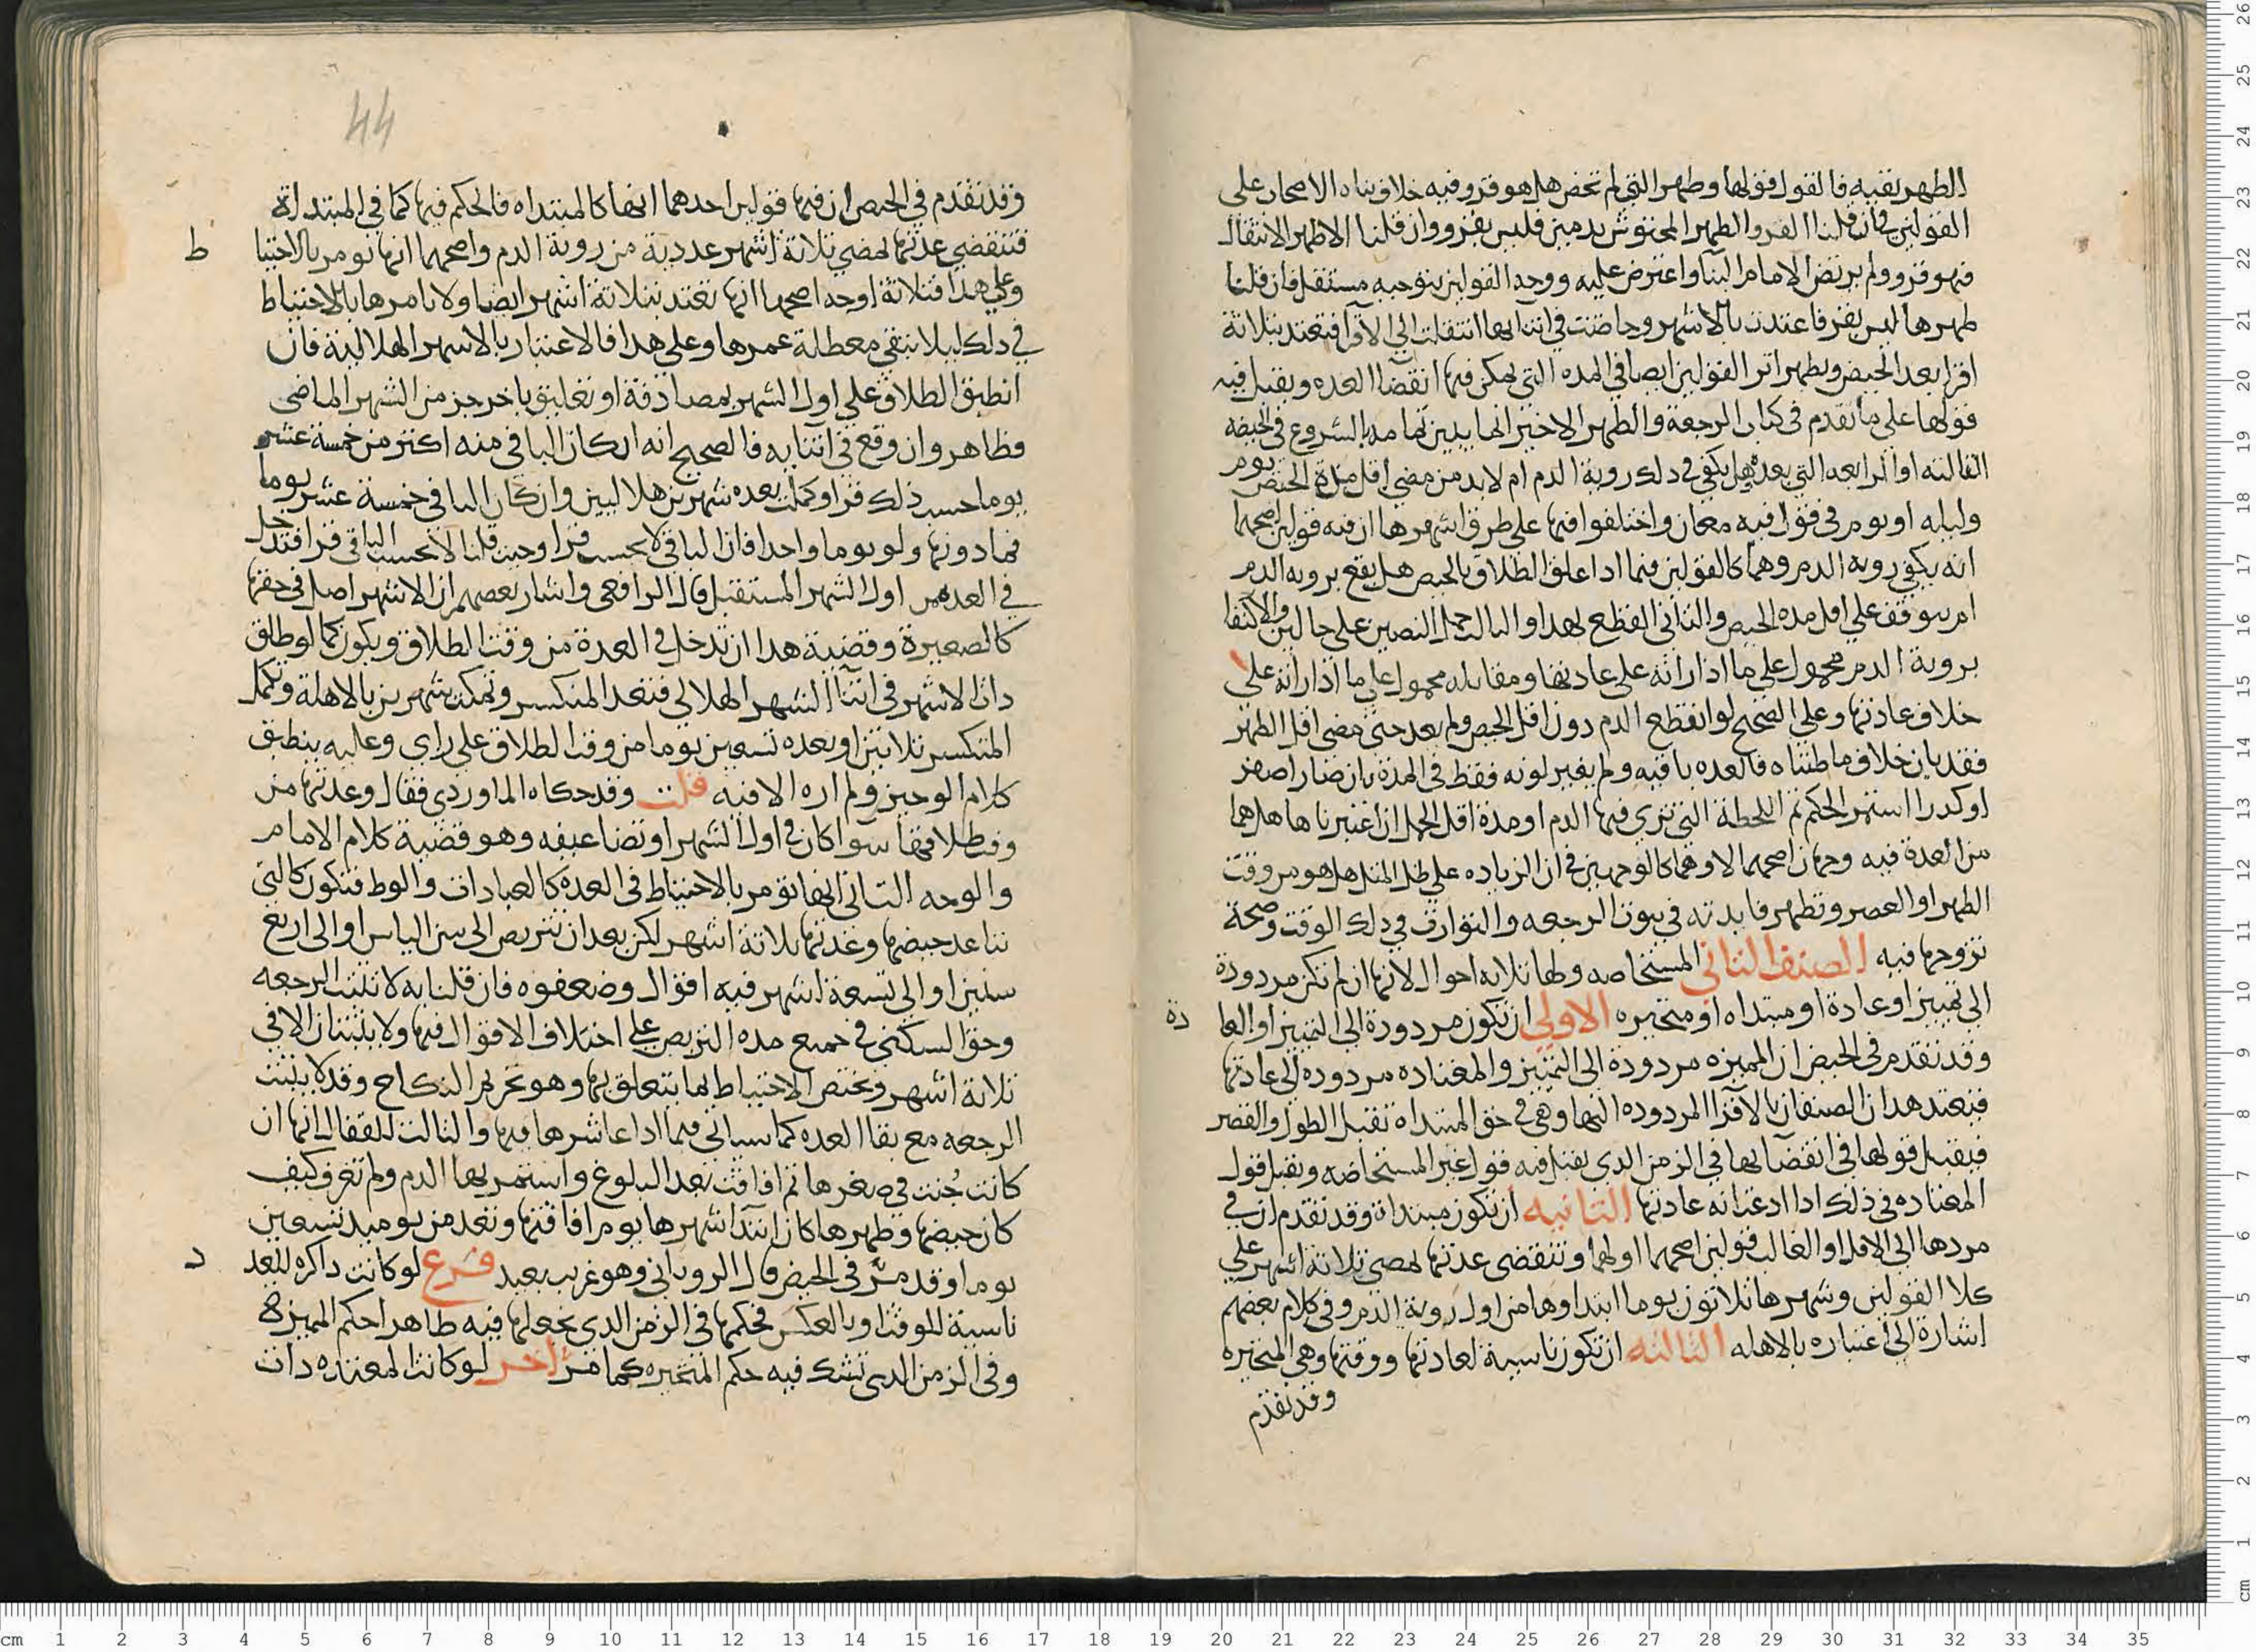 الطهر بقيه فالقول قولها وطهر التي لم تحض هل هو قرو فيه خلاف بناه الاصحاب على
القولين فان قلنا القرو الطهر المحتوش بدمين فليس بقرو وان قلنا الاظهر الانتقال
فهو قرو ولم يرتض الامام البنا واعترض عليه ووجه القولين بتوجيه مستقل فان قلنا
طهرها ليس بقر فاعتدت بالاشهر وحاضت في اثنايها انتقلت الى الاقرا فتعتد بثلاثة
اقرا بعد الحيض ويظهر اثر القولين ايضا في المده التي يمكن فيها انقضا العده ويقبل فيه
قولها على ما تقدم في كتاب الرجعة والطهر الاخير انما يتبين تمامه بالشروع في الحيضه
الثالثه او الرابعه التي بعده هل يكفي في ذلك روية الدم ام لابد من مضي اقل مدة الحيض يوم
وليله او يوم في قول فيه معان واختلفوا فيها على طرق اشهرها ان فيه قولين اصحهما
انه يكفي رويه الدم وهما كالقولين فيما اذا علق الطلاق بالحيض هل يقع برويه الدم
ام يتوقف على اقل مده الحيض والثاني القطع بهدا والثالث حمل النصين على حالين والاكتفا
بروية الدم محمول على ما اذا راته على عادتها ومقابله محمول على ما اذا راته على
خلاف عادتها وعلى الصحيح لو انقطع الدم دون اقل الحيض ولم يعد حتى مضى اقل الطهر
فقد بان خلاف ما ظنناه فالعده باقيه ولم يغير لونه فقط في المدة بان صار اصفر
او كدرا استمر الحكم ثم اللحظة التي ترى فيها الدم او مدة اقل الحمل ان اعتبرناها هل هما
من العدة فيه وجهان اصحهما لا وهما كالوجهين في ان الزياده على ظل المثل هل هو من وقت
الظهر او العصر وتظهر فايدته في ثبوت الرجعه والتوارث في ذلك الوقت وصحة
تزوجها فيه الصنف الثاني المستحاضه ولها ثلاثه احوال لانها ان لم تكن مردودة
الى تمييز او عادة او مبتداه او متحيره الاولى ان تكون مردودة الى التمييز او العا دة
وقد تقدم في الحيض ان المميزه مردودة الى التمييز والمعتاده مردوده الى عادتها
فتعتد هذان الصنفان بالاقرا المردوده اليها وهي في حق المبتداه تقبل الطول والقصر
فيقبل قولها في انقضايها في الزمن الدي يقبل فيه قول غير المستحاضه ويقبل قول
المعتاده في ذلك اذا ادعت انه عادتها الثانيه ان تكون مبتداة وقد تقدم ان في
مردها الى الاقل او الغالب قولين اصحهما اولها وتنقضى عدتها بمضي ثلاثة اشهر على
كلا القولين وشهرها ثلاثون يوما ابتداوها من اول روية الدم وفي كلام بعضهم
اشارة الى اعتباره بالاهله الثالثه ان تكون ناسية لعادتها ووقتها وهي المتحيره
وقد تقدم
44
وقد تقدم في الحيض ان فيها قولين احدهما انها كالمبتداه فالحكم فيها كما في المبتداة
فتنقضي عدتها بمضي ثلاثة اشهر عددية من روية الدم واصحهما انها تومر بالاحتيا ط
وعلى هدا فثلاثة اوجه اصحها انها تعتد بثلاثة اشهر ايضا ولا نامرها بالاحتياط
في ذلك ليلا تبقى معطلة عمرها وعلى هدا فالاعتبار بالاشهر الهلالية فان
انطبق الطلاق على اول الشهر بمصادفة او تعليق باخر جز من الشهر الماضي
فظاهر وان وقع في اثنايه فالصحيح انه ان كان الباقي منه اكثر من خمسة عشر
يوما حسب ذلك قرا وكملت بعده شهرين هلاليين وان كان الباقي خمسة عشر يوما
فما دونها ولو يوما واحدا فان الباقي لا يحسب قرا وحيث قلنا لا يحسب الباقي قرا فتدخل
في العده من اول الشهر المستقبل قال الرافعي واشار بعضهم ان الاشهر اصل في حقها
كالصغيرة وقضية هدا ان تدخل في العدة من وقت الطلاق ويكون كما لو طلق
ذات الاشهر في اثنا الشهر الهلالي فتعد المنكسر وتمكث شهرين بالاهلة وتكمل
المنكسر ثلاثين او بعده تسعين يوما من وقت الطلاق على راى وعليه ينطبق
كلام الوجيز ولم اره الا فيه قلت وقد حكاه الماوردي فقال وعدتها من
وقت طلاقها سوا كان في اول الشهر او تضاعيفه وهو قضية كلام الامام
والوجه الثاني انها تومر بالاحتياط في العدة كالعبادات والوط فتكون كالتي
تباعد حيضها وعدتها ثلاثة اشهر لكن بعد ان تتربص الى سن الياس او الى اربع
سنين او الى تسعة اشهر فيه اقوال وضعفوه فان قلنا به لا تثبت الرجعه
وحق السكنى في جميع مده التربص على اختلاف الاقوال فيها ولا يثبتان الا في
ثلاثة اشهر ويختص الاحتياط بما يتعلق بها وهو تحريم النكاح وقد لا يثبت
الرجعه مع بقا العده كما سياتي فيما اذا عاشرها فيها والثالث للقفال انها ان
كانت جُنت في صغرها ثم افاقت بعد البلوغ واستمر بها الدم ولم تعرف كيف
كان حيضها وطهرها كان ابتدا شهرها يوم افاقتها وتعد من يوميد تسعين
يوما وقد مرّ في الحيض قال الروياني وهو غريب بعيد فرع لو كانت ذاكره للعد د
ناسية للوقت او بالعكس فحكمها في الزمن الدي يجعلها فيه طاهرا حكم المميزة
وفي الزمن الدى تشك فيه حكم المتحيره كما مرّ اخر لو كانت المعتده ذات